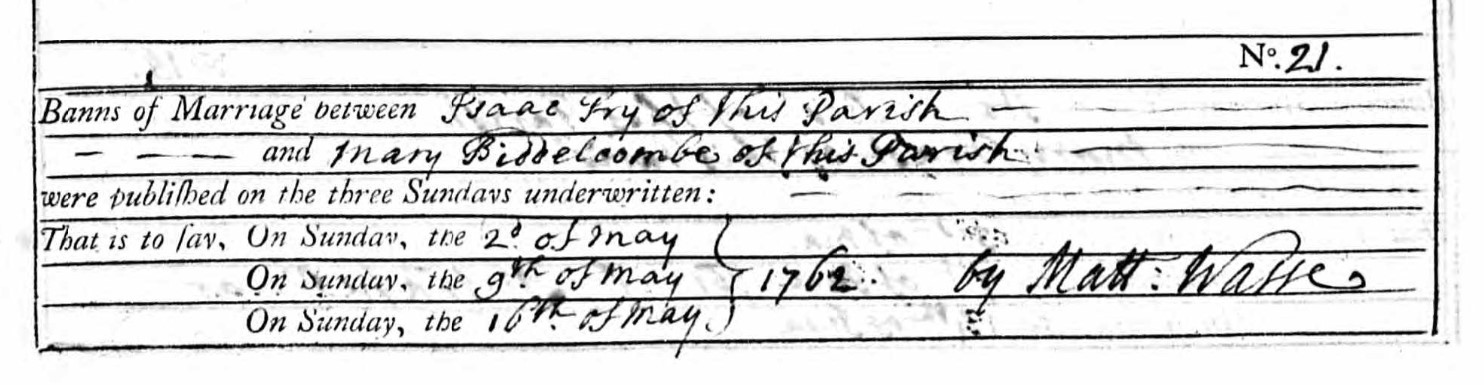 No. 21.
Banns of Marriage between Isaac Fry of this Parish
and Mary Biddelcombe of this Parish
were publiſhed on the three Sundays underwritten:
That is to ſay, On Sunday, the 2d. of May
On Sunday, the 9th. of May } 1762. by Matt: Waſse
On Sunday, the 16th. of May